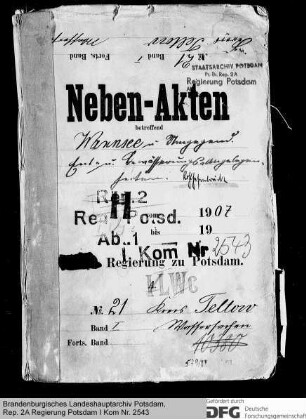 Kreis Teltow
Forts. Band Band I № 21
STAATSARCHIV POTSDAM
Pr. Br. Rep. 2A
Regierung Potsdam
Neben-Akten
betreffend
Wannsee u Umgegend.
Rep. 2
Reg. Potsd.
II
1907
Ab..1
bis
19
I Kom Nr 2543
Regierung zu Potsdam.
№ 21 Kreis Teltow
Band I Wassersachen
Forts. Band
Brandenburgisches Landeshauptarchiv Potsdam,
Rep. 2A Regierung Potsdam I Kom Nr. 2543
Gefördert durch
DFG Deutsche
Forschungsgemeinschaft